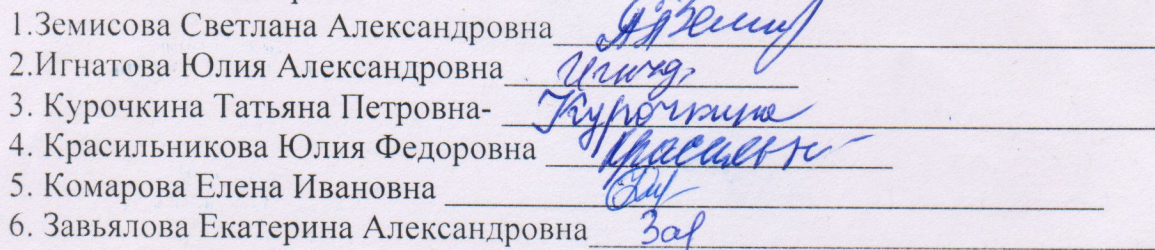 1.Земисова Светлана Александровна
2.Игнатова Юлия Александровна
3. Курочкина Татьяна Петровна- Курочкина
4. Красильникова Юлия Федоровна
5. Комарова Елена Ивановна
6. Завьялова Екатерина Александровна Зав